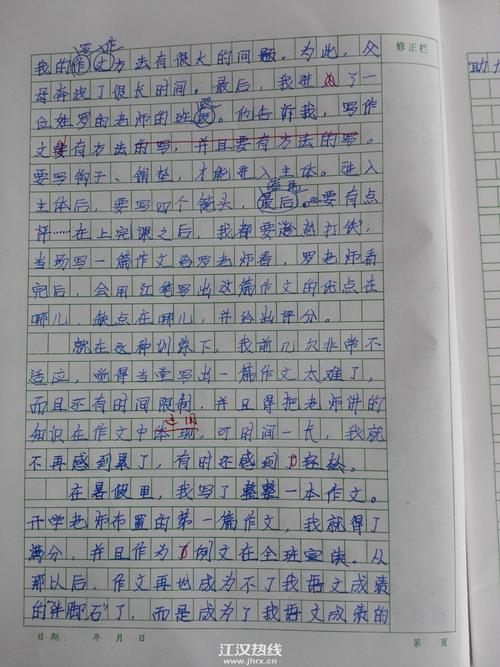 修正栏
写作
我的作文方法有很大的问题。为此，父
母奔波了很长时间。最后，我进了一
位姓罗的老师的班。他告诉我，写作
文要有方法的写，并且要有方法的写。
要写钩子、铺垫，才能进入主体。进入
主体后，要写四个镜头，最后。要有点
评……在上完课之后，我都要趁热打铁，
当场写一篇作文给罗老师看，罗老师看
完后，会用红笔写出这篇作文的优点在
哪儿，缺点在哪儿，并给出评分。
就在这种训练下，我前几次非常不
适应，觉得当堂写出一篇作文太难了，
而且还有时间限制，并且得把老师讲的
运用
知识在作文中体现，可时间一长，我就
不再感到累了，有时还感到轻松。
在暑假里，我写了整整一本作文。
开学老师布置的第一篇作文，我就得了
满分，并且作为例文在全班宣读。从
那以后，作文再也成为不了我语文成绩
的“绊脚石”了，而是成为了我语文成绩的
日期： 年 月 日
第 页
江汉热线
www.jhrx.cn